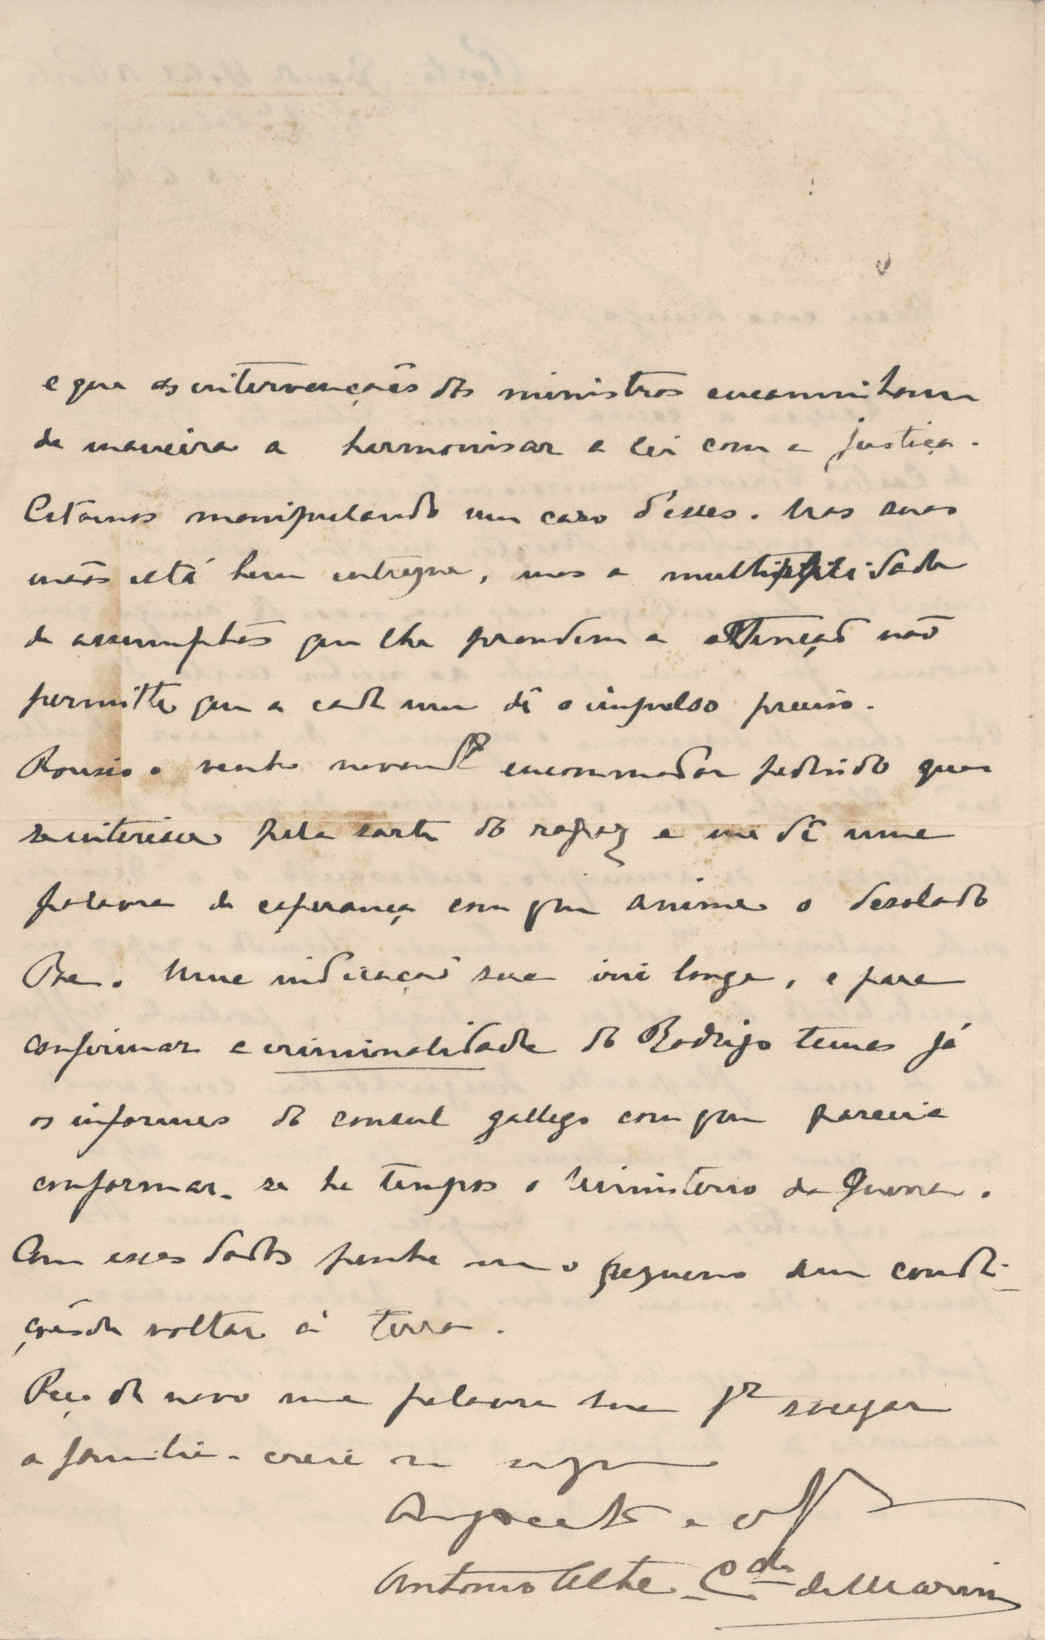 e que as intervenções dos ministros encaminham
de maneira a harmonisar a lei com a justiça.
Estamos manipulando um caso d'esses. Nas suas
mãos está bem entregue, mas a multiplicidade
de assumptos que lhe prendem a attenção não
permitte que a cada um dê o impulso preciso.
venho encommodar pedindo que
se interesse pela sorte do rapaz e me dê uma
palavra de esperança com que anime o desolado
Pae. Uma indicação sua irá longe, e para
confirmar a criminalidade do Rodrigo temos já
os informes do consul gallego com que parecia
conformar-se ha tempos o Ministerio da Guerra.
Com esses dados ponha-me o pequeno em condi-
ções de voltar á terra.
Peço de novo uma palavra sua pª socegar
a familia. creia
Antonio Alte Cde de Marim